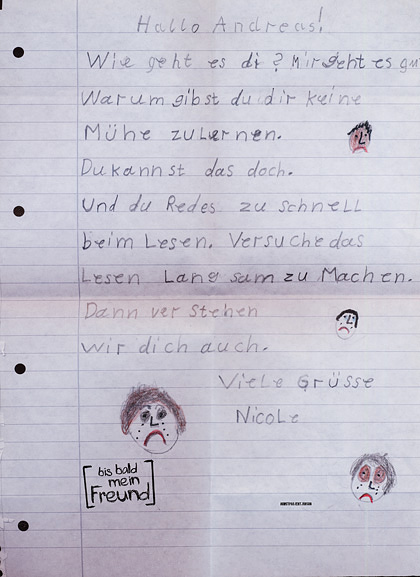 Hallo Andreas!
Wie geht es dir? Mir geht es gu
Warum gibst du dir keine
Mühe zu Lernen.
Du kannst das doch.
Und du Redes zu schnell
beim Lesen. Versuche das
Lesen Langsam zu Machen.
Dann verstehen
wir dich auch.
Viele Grüsse
Nicole
[bis bald
mein
Freund]